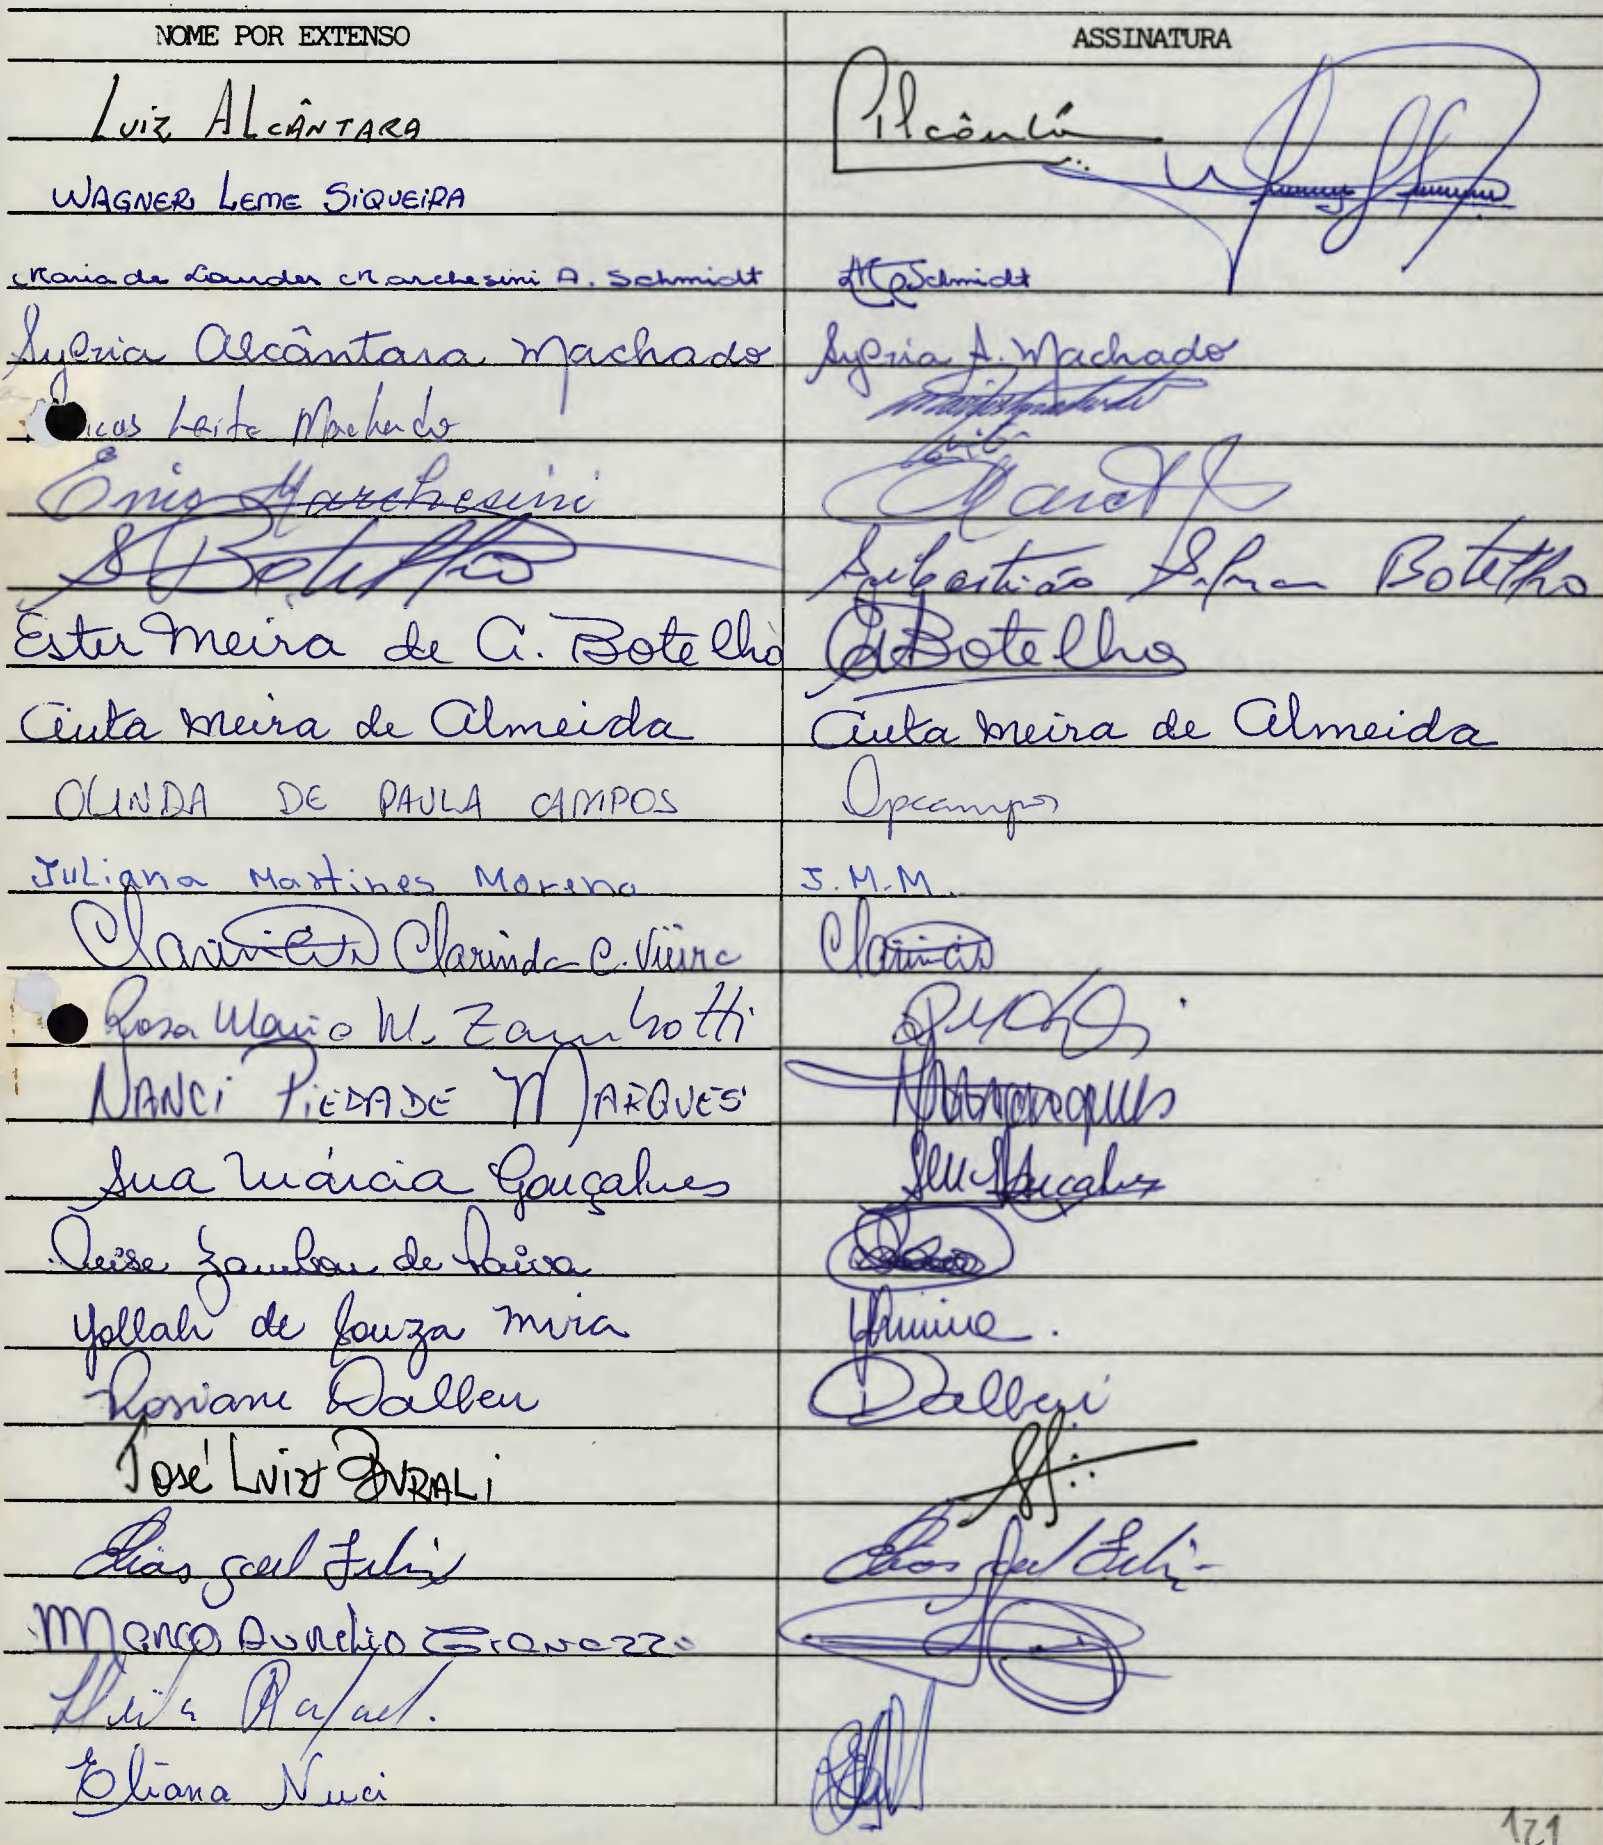 NOME POR EXTENSO ASSINATURA
Luiz ALCÂNTARA Alcântá
WAGNER LEME SIQUEIRA
Maria de Lourdes Marchesini A. Schmidt Schmidt
Sylvia Alcântara Machado Sylvia A. Machado
Leite Machado
Enio Marchesini
S Botelho Sebastião Botelho
Ester Meira de A. Botelho Botelho
Auta Meira de Almeida Auta Meira de Almeida
OLINDA DE PAULA CAMPOS Opcampos
Juliana Martines Moreno J.M.M.
Clarinda C. Vieira
Rosa Maria M. Zambotti
NANCI PIEDADE MARQUES
Márcia Gonçalves Gonçalves
Zambon de Paiva
Yollah de Souza Mira
Rosiane Dalben Dalben
José Luiz BURALI
Elias Felix Elias Felix
Marco Aurelio
Rafael.
Eliana Nuci
121